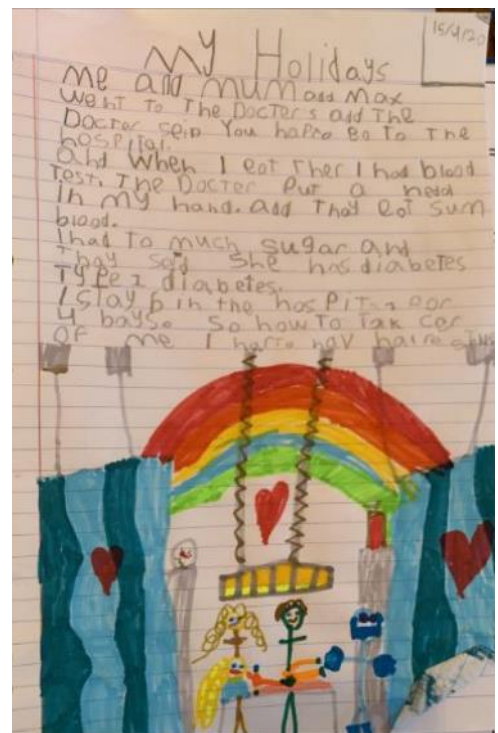 15/4/20
My Holidays
Me and mum and Max
went to The Docters add The
Doctor seip You hafro go To The
hospital.
and when I got Ther I had blood
Test. The Docter Put a nedd
in my hand. add Thay got sum
blood.
I had To much sugar and
Thay said She has diabetes
TyPe 1 diabetes.
I stay b in the hosPital for
4 bays. So how To Tak cer
OF me I